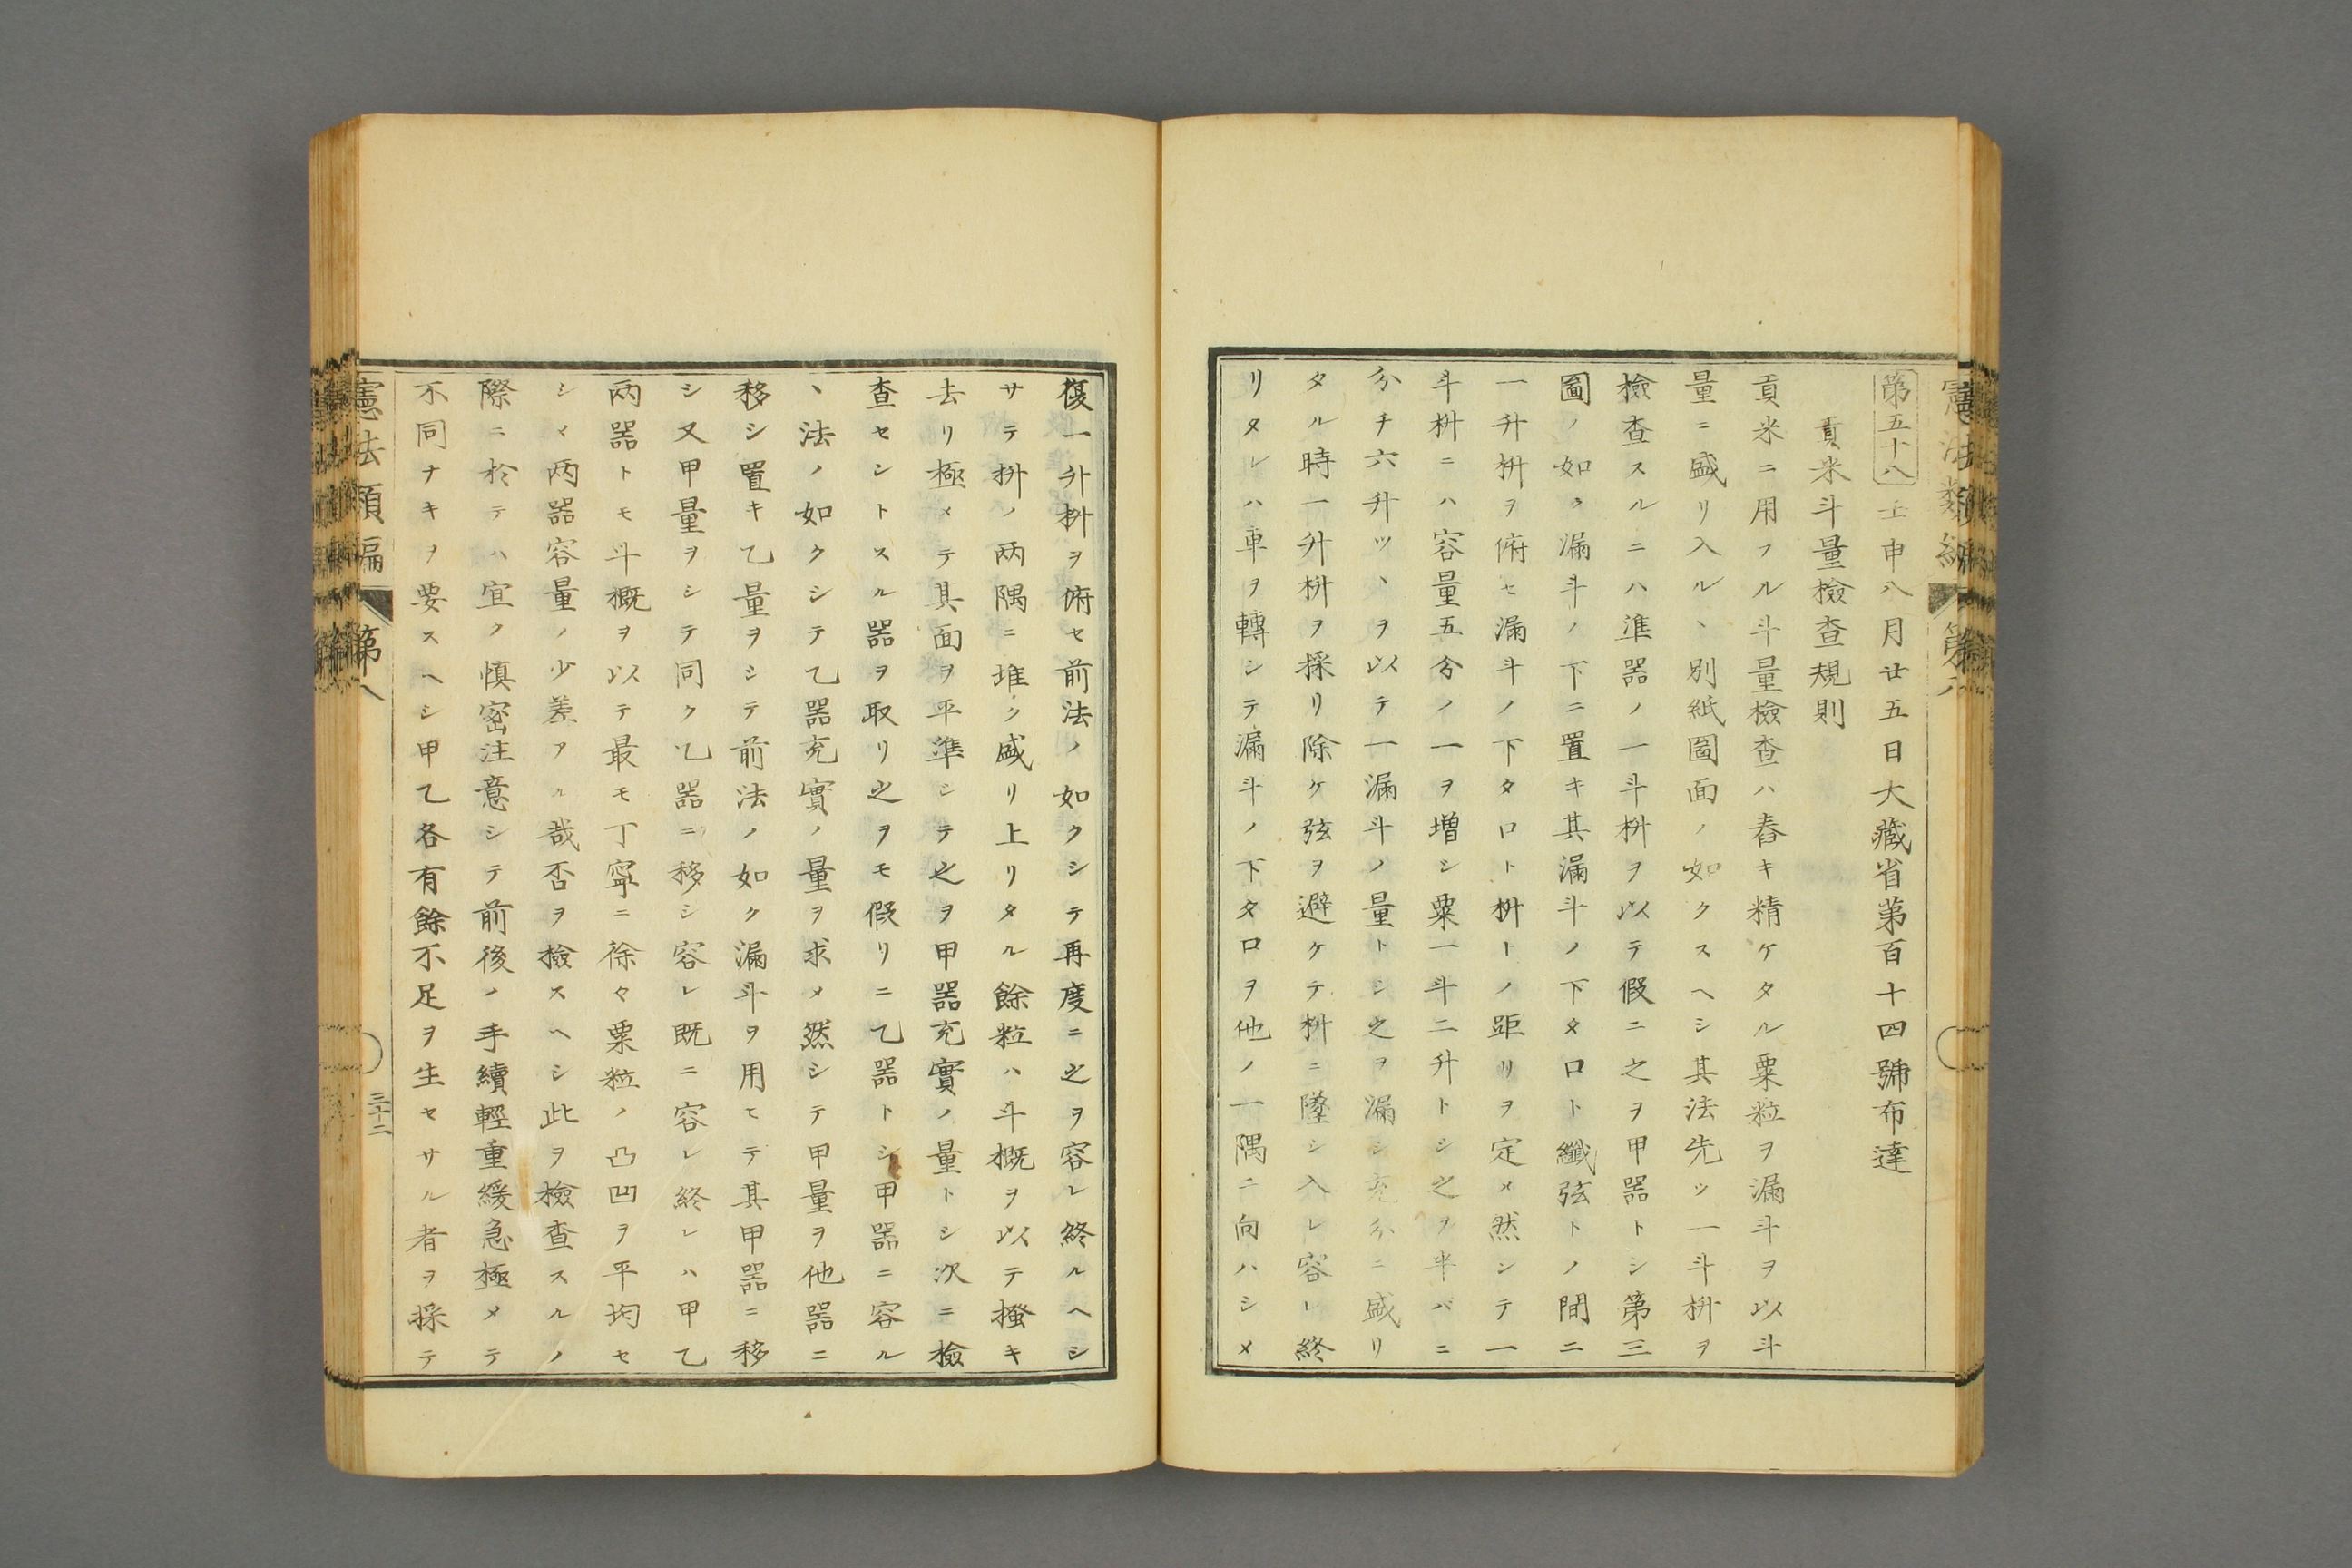 憲法類編 第八
第五十八 壬申八月廿五日大藏省第百十四號布達
貢米斗量檢查規則
貢米ニ用フル斗量檢查ハ舂キ精ケタル粟粒ヲ漏斗ヲ以斗
量ニ盛リ入ル丶別紙圖面ノ如クスヘシ其法先ツ一斗枡ヲ
檢查スルニハ準器ノ一斗枡ヲ以テ假ニ之ヲ甲器トシ第三
圖ノ如ク漏斗ノ下ニ置キ其漏斗ノ下タ口ト纖弦トノ間ニ
一升枡ヲ俯セ漏斗ノ下タ口ト枡トノ距リヲ定メ然シテ一
斗枡ニハ容量五分ノ一ヲ増シ粟一斗二升トシ之ヲ半バニ
分チ六升ツ丶ヲ以テ一漏斗ノ量トシ之ヲ漏シ充分ニ盛リ
タル時一升枡ヲ採リ除ケ弦ヲ避ケテ枡ニ墜シ入レ容レ終
リタレハ車ヲ轉シテ漏斗ノ下タ口ヲ他ノ一隅ニ向ハシメ
復一升枡ヲ俯セ前法ノ如クシテ再度ニ之ヲ容レ終ルヘシ
サテ枡ノ両隅ニ堆ク盛リ上リタル餘粒ハ斗概ヲ以テ搔キ
去リ極メテ其面ヲ平準シテ之ヲ甲器充實ノ量トシ次ニ檢
查セントスル器ヲ取リ之ヲモ假リニ乙器トシ甲器ニ容ル
丶法ノ如クシテ乙器充實ノ量ヲ求メ然シテ甲量ヲ他器ニ
移シ置キ乙量ヲシテ前法ノ如ク漏斗ヲ用ヒテ其甲器ニ移
シ又甲量ヲシテ同ク乙器ニ移シ容レ既ニ容レ終レハ甲乙
两器トモ斗概ヲ以テ最モ丁寧ニ徐々粟粒ノ凸凹ヲ平均セ
シメ两器容量ノ少差アル哉否ヲ檢スヘシ此ヲ檢查スルノ
際ニ於テハ宜ク慎密注意シテ前後ノ手續輕重緩急極メテ
不同ナキヲ要スヘシ甲乙各有餘不足ヲ生セサル者ヲ採テ
憲法類編 第八 三十二